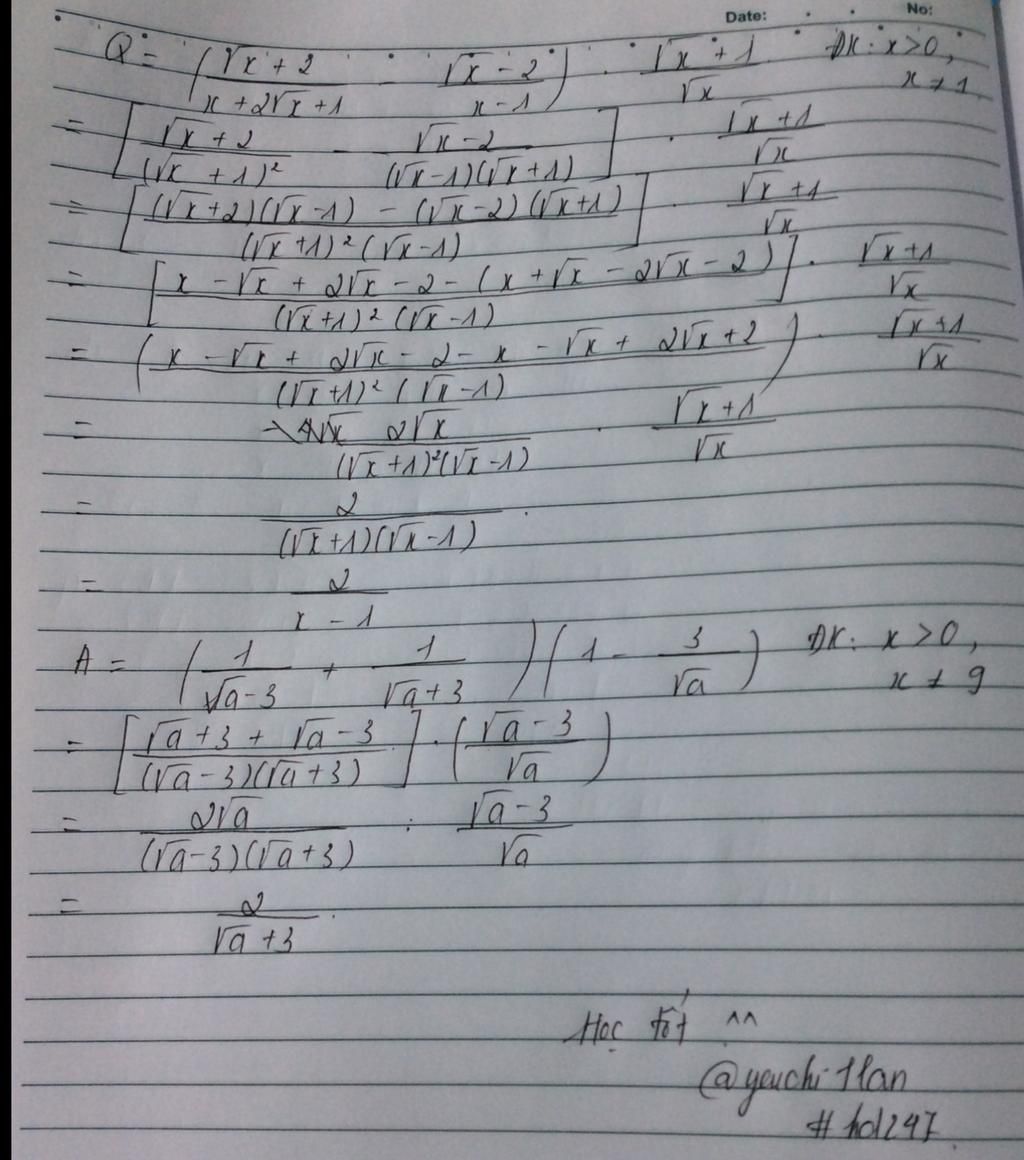 Date: No:
Q = ( (√x + 2)/(x + 2√x + 1) - (√x - 2)/(x - 1) ) . (√x + 1)/√x ĐK: x > 0,
x ≠ 1
= [ (√x + 2)/(√x + 1)² - (√x - 2)/((√x - 1)(√x + 1)) ] . (√x + 1)/√x
= [ ((√x + 2)(√x - 1) - (√x - 2)(√x + 1))/((√x + 1)²(√x - 1)) ] . (√x + 1)/√x
= [ (x - √x + 2√x - 2 - (x + √x - 2√x - 2))/((√x + 1)²(√x - 1)) ] . (√x + 1)/√x
= ( (x - √x + 2√x - 2 - x - √x + 2√x + 2)/((√x + 1)²(√x - 1)) ) . (√x + 1)/√x
= 2√x/((√x + 1)²(√x - 1)) . (√x + 1)/√x
= 2/((√x + 1)(√x - 1)) .
= 2/(x - 1)
A = ( 1/(√a - 3) + 1/(√a + 3) ) ( 1 - 3/√a ) ĐK: x > 0,
x ≠ 9
= [ (√a + 3 + √a - 3)/((√a - 3)(√a + 3)) ] . ( (√a - 3)/√a )
= 2√a/((√a - 3)(√a + 3)) . (√a - 3)/√a
= 2/(√a + 3) .
Học tốt ^^